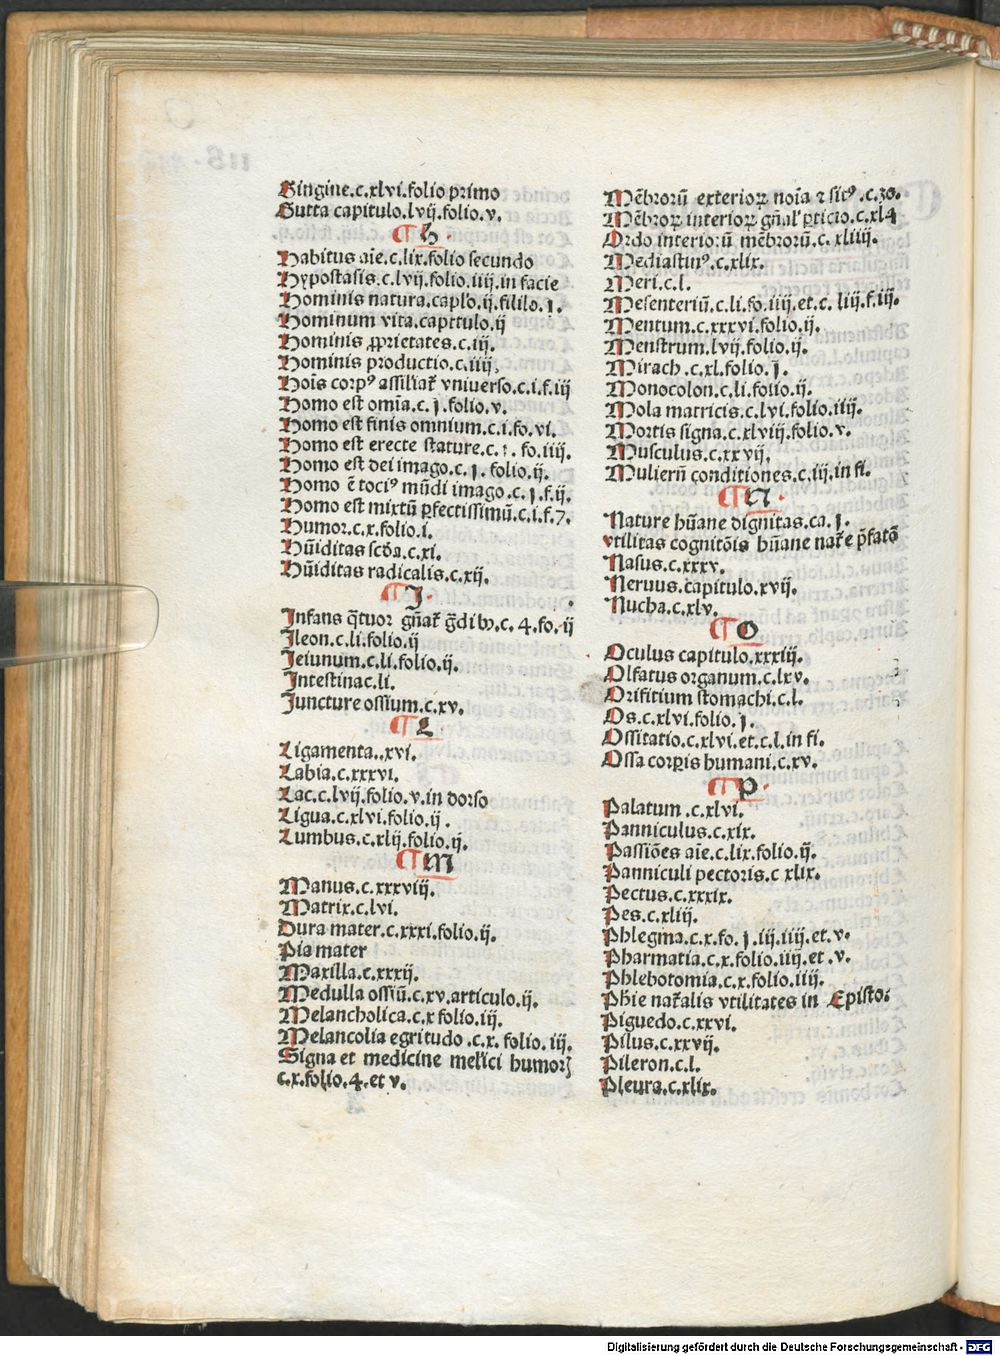 Gingine.c.xlvi.folio primo
Gutta capitulo.lvij.folio.v.
¶ H.
Habitus aīe.c.lix.folio secundo
Hypostasis.c.lvij.folio.iiij.in facie
Hominis natura.caplo.ij.fililo.j.
Hominum vita.capitulo.ij
Hominis ꝓprietates.c.iij.
Hominis productio.c.iiij.
Hoīs corpꝰ assiliat̄ vniuerso.c.i.f.iij
Homo est omīa.c.j.folio.v.
Homo est finis omnium.c.i.fo.vi.
Homo est erecte stature.c.i.fo.iiij.
Homo est dei imago.c.j.folio.ij.
Homo ē tociꝰ mūdi imago.c.j.f.ij.
Homo est mixtū ꝑfectissimū.c.i.f.7.
Humor.c.x.folio.i.
Hūiditas scd̄a.c.xi.
Hūiditas radicalis.c.xij.
¶ J.
Infans q̄tuor gn̄at̄ ḡdibꝰ.c.4.fo.ij
Ileon.c.li.folio.ij
Jeiunum.c.li.folio.ij.
Intestinac.li.
Juncture ossium.c.xv.
¶ L
Ligamenta..xvi.
Labia.c.xxxvi.
Lac.c.lvij.folio.v.in dorso
Ligua.c.xlvi.folio.ij.
Lumbus.c.xlij.folio.ij.
¶ M
Manus.c.xxxviij.
Matrix.c.lvi.
Dura mater.c.xxxi.folio.ij.
Pia mater
Maxilla.c.xxxij.
Medulla ossiū.c.xv.articulo.ij.
Melancholica.c.x folio.iij.
Melancolia egritudo.c.x.folio.iij.
Signa et medicine mel̄ici humorꝝ
c.x.folio.4.et v.
Mēbrorū exteriorꝝ noīa ⁊ sitꝰ.c.30.
Mēbrorꝝ interiorꝝ gn̄al' ꝑticio.c.xl4
Ordo interiorū mēbrorū.c.xliiij.
Mediastinꝰ.c.xlix.
Meri.c.l.
Mesenteriū.c.li.fo.iiij.et.c.liij.f.iij.
Mentum.c.xxxvi.folio.ij.
Menstrum.lvij.folio.ij.
Mirach.c.xl.folio.j.
Monocolon.c.li.folio.ij.
Mola matricis.c.lvi.folio.iiij.
Mortis signa.c.xlviij.folio.v.
Musculus.c.xxvij.
Mulierū conditiones.c.iij.in fi.
¶ N.
Nature hūane dignitas.ca.j.
vtilitas cognitōis hūane nat̄e p̄fatō
Nasus.c.xxxv.
Neruus.capitulo.xvij.
Nucha.c.xlv.
¶ O
Oculus capitulo.xxxiij.
Olfatus organum.c.lxv.
Orifitium stomachi.c.l.
Os.c.xlvi.folio.j.
Ossitatio.c.xlvi.et.c.l.in fi.
Ossa corꝑis humani.c.xv.
¶ P.
Palatum.c.xlvi.
Panniculus.c.xix.
Passiōes aīe.c.lix.folio.ij.
Panniculi pectoris.c xlix.
Pectus.c.xxxix.
Pes.c.xliij.
Phlegma.c.x.fo.j.iij.iiij.et.v.
Pharmatia.c.x.folio.iiij.et.v.
Phlebotomia.c.x.folio.iiij.
Ph̄ie nat̄alis vtilitates in Episto:
Piguedo.c.xxvi.
Pilus.c.xxvij.
Pileron.c.l.
Pleura.c.xlix.
Digitalisierung gefördert durch die Deutsche Forschungsgemeinschaft - DFG